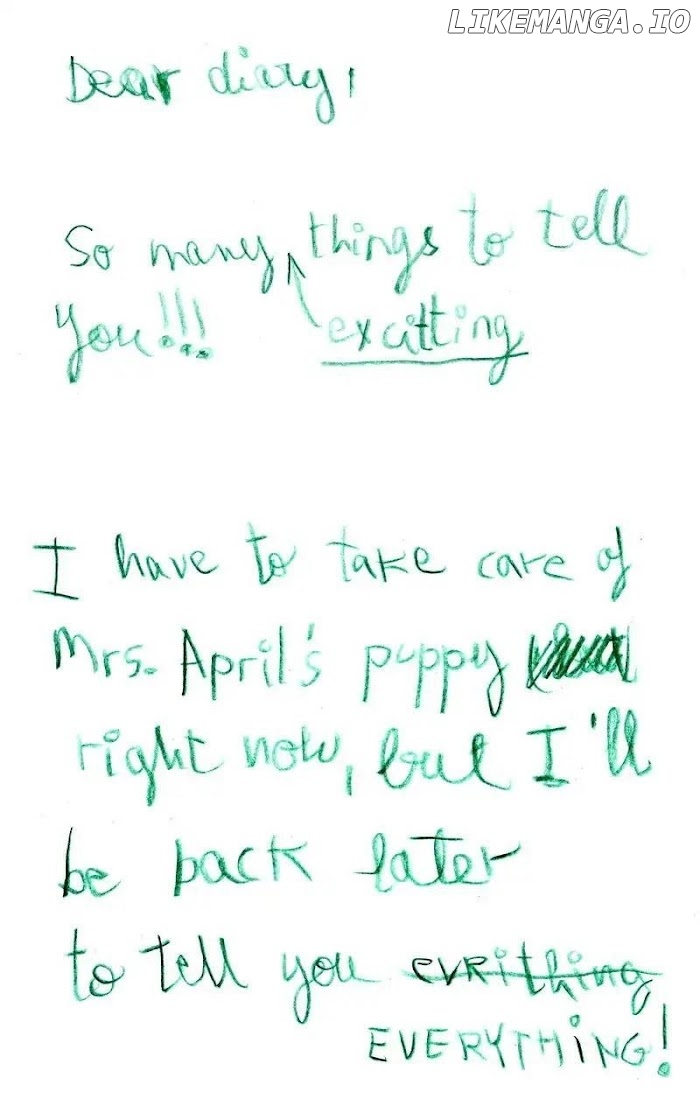 LIKEMANGA.IO
Dear diary,
So many things to tell
you!!! excitting
I have to take care of
Mrs. April's puppy
right now, but I'll
be back later
to tell you evrithing
EVERYTHING!